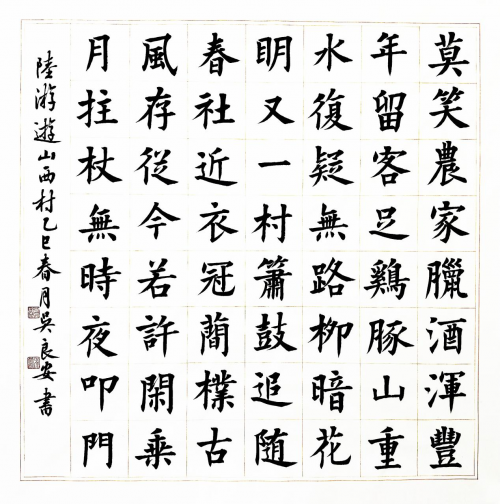 莫笑農家臘酒渾豐
年留客足鷄豚山重
水復疑無路柳暗花
明又一村簫鼓追随
春社近衣冠蕳樸古
風存從今若許閑乗
月拄杖無時夜叩門
陸游遊山西村乙巳春月吳良安書